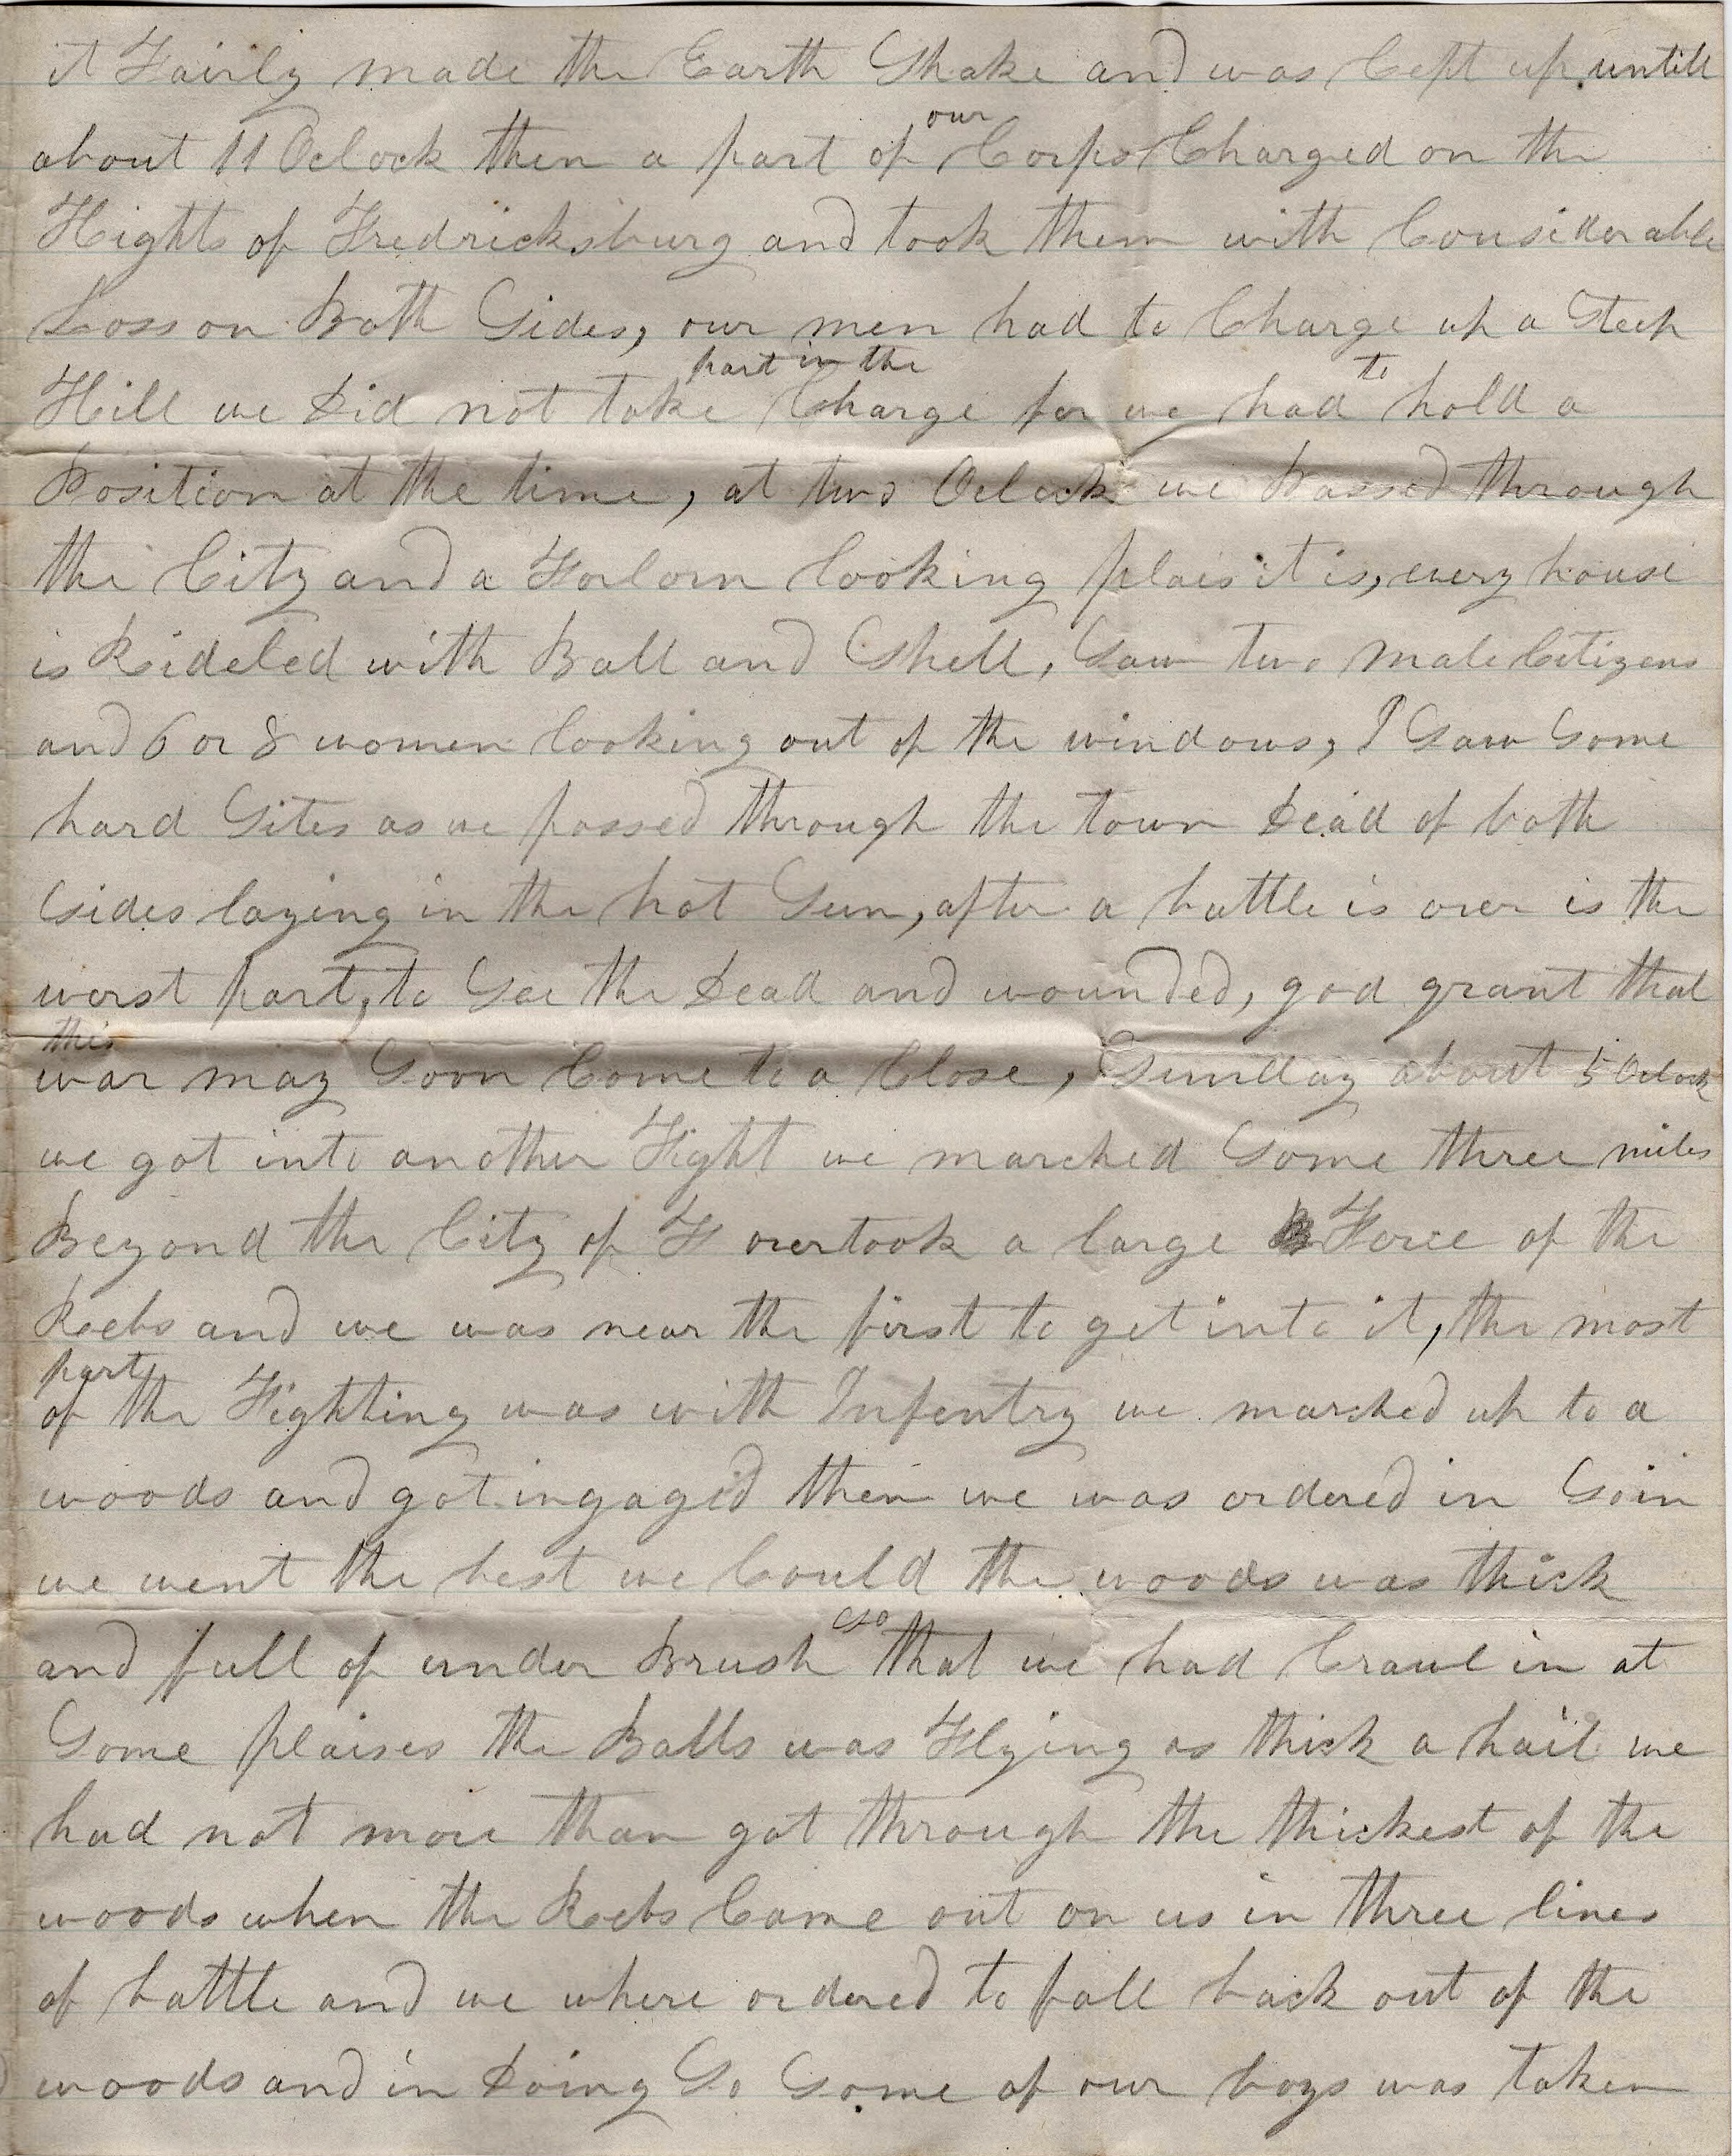 it Fairly made the Earth Shake and was Cept up untill
about 11 Oclock then a part of our Corps Charged on the
Hights of Fredricksburg and took them with Considerable
Loss on Both Sides, our men had to Charge up a Steep
Hill we Did not take part in the Charge for we had to hold a
Position at the time, at two Oclock we Passed through
the City and a Forlorn looking plais it is, every house
is Rideled with Ball and Shell, Saw two male Citizens
and 6 or 8 women looking out of the windows, I Saw Some
hard Sites as we passed through the town Dead of both
Sides laying in the hot Sun, after a battle is over is the
worst part, to See the Dead and wounded, god grant that
this war may Soon Come to a Close, Sunday about 5 Oclock
we got into another Fight we marched Some three miles
Beyond the City of F overtook a large Force of the
Rebs and we was near the first to get into it, the most
part of the Fighting was with Infentry we marched up to a
woods and got ingaged then we was ordered in So in
we went the best we Could the woods was thick
and full of under Brush so that we had Crawl in at
Some plaises the Balls was Flying as thick a hail we
had not more than got through the thickest of the
woods when the Rebs Came out on us in three lines
of battle and we where ordered to fall back out of the
woods and in Doing So Some of our boys was taken